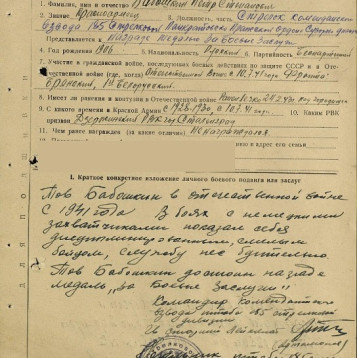 1. Фамилия, имя и отчество Бабошкин Петр Степанович
2. Звание Красноармеец 3. Должность, часть Стрелок Комендантского
взвода 165 Стрелковой
Представляется к награде Медалью "За Боевые Заслуги"
4. Год рождения 1906 5. Национальность Русский 6. Партийность Беспартийный
7. Участие в гражданской войне, последующих боевых действиях по защите СССР и в Отече-
ственной войне (где, когда) Отечественная Война с 10.7.41 года Фронта:
Брянский, Белорусский.
8. Имеет ли ранения и контузии в Отечественной войне
9. С какого времени в Красной Армии с 1928-1930 с 10.7.41 10. Каким РВК
призван Дзержинский РВК гор Сталинград
11. Чем ранее награжден (за какие отличия) Не награждался
ии и адрес его семьи
I. Краткое конкретное изложение личного боевого подвига или заслуг
Тов Бабошкин в отечественной войне
с 1941 года В боях с немецкими
захватчиками показал себя
дисциплинированным, смелым
бойцом, службу нес бдительно.
Тов Бабошкин достоин награде
медаль "За Боевые Заслуги"
Командир Комендантского
взвода штаба 165 стрелковой
дивизии